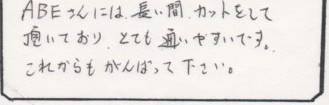 ABEさんには、長い間、カットをして
頂いており、とても通いやすいです。
これからもがんばって下さい。